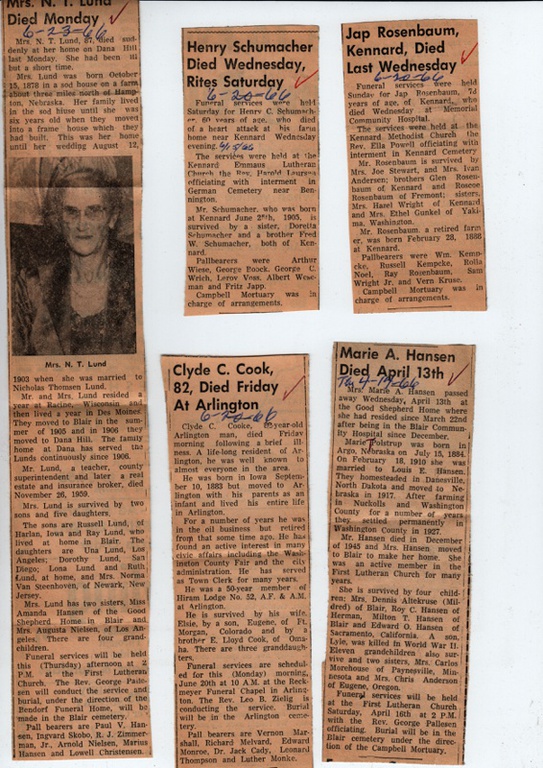 Mrs. N. T. Lund
Died Monday
6-23-66
Mrs. N. T. Lund, 87, died sud-
denly at her home on Dana Hill
last Monday. She had been ill
but a short time.
Mrs. Lund was born October
15, 1878 in a sod house on a farm
about three miles north of Hamp-
ton, Nebraska. Her family lived
in the sod house until she was
six years old when they moved
into a frame house which they
had built. This was her home
until her wedding August 12,
Mrs. N. T. Lund
1903 when she was married to
Nicholas Thomsen Lund.
Mr. and Mrs. Lund resided a
year at Racine, Wisconsin and
then lived a year in Des Moines.
They moved to Blair in the sum-
mer of 1905 and in 1906 they
moved to Dana Hill. The family
home at Dana has served the
Lunds continuously since 1906.
Mr. Lund, a teacher, county
superintendent and later a real
estate and insurance broker, died
November 26, 1959.
Mrs. Lund is survived by two
sons and five daughters.
The sons are Russell Lund, of
Harlan, Iowa and Ray Lund, who
lives at home in Blair. The
daughters are Una Lund, Los
Angeles; Dorothy Lund, San
Diego; Lona Lund and Ruth
Lund, at home, and Mrs. Norma
Van Steenhoven, of Newark, New
Jersey.
Mrs. Lund has two sisters, Miss
Amanda Hansen of the Good
Shepherd Home in Blair and
Mrs. Augusta Nielsen, of Los An-
geles. There are four grand-
children.
Funeral services will be held
this (Thursday) afternoon at 2
P.M. at the First Lutheran
Church. The Rev. George Palle-
sen will conduct the service and
burial, under the direction of the
Bendorf Funeral Home, will be
made in the Blair cemetery.
Pall bearers are Paul V. Han-
sen, Ingvard Skobo, R. J. Zimmer-
man, Jr., Arnold Nielsen, Marius
Hansen and Lowell Christensen.
Henry Schumacher
Died Wednesday,
Rites Saturday
6-20-66
Funeral services were held
Saturday for Henry C. Schumach-
er, 60 years of age, who died
of a heart attack at his farm
home near Kennard Wednesday
evening.
The services were held at the
Kennard Emmaus Lutheran
Church the Rev. Harold
officiating with interment in
German Cemetery near Ben-
nington.
Mr. Schumacher, who was born
at Kennard June 25th, 1905, is
survived by a sister, Doretta
Schumacher and a brother Fred
W. Schumacher, both of Ken-
nard.
Pallbearers were Arthur
Wiese, George Boock, George C.
Wrich, Leroy Voss, Albert Wese-
man and Fritz Japp.
Campbell Mortuary was in
charge of arrangements.
Jap Rosenbaum,
Kennard, Died
Last Wednesday
6-20-66
Funeral services were held
Sunday for Jap Rosenbaum,
years of age of Kennard, who
died Wednesday at Memorial
Community Hospital.
The services were held at the
Kennard Methodist Church the
Rev. Ella Powell officiating with
interment in Kennard Cemetery
Mr. Rosenbaum is survived by
Mrs. Joe Stewart, and Mrs. Ivan
Andersen; brothers Glen Rosen-
baum of Kennard and Roscoe
Rosenbaum of Fremont; sisters,
Mrs. Hasel Wright of Kennard
and Mrs. Ethel Gunkel of Yaki-
ma, Washington.
Mr. Rosenbaum, a retired farm
er, was born February 28, 1888
at Kennard.
Pallbearers were Wm. Kemp-
cke, Russell Kempcke, Rolla
Noel, Ray Rosenbaum, Sam
Wright Jr. and Vern Kruse.
Campbell Mortuary was in
charge of arrangements.
Clyde C. Cook,
82, Died Friday
At Arlington
6-20-66
Clyde C. Cooke, 82-year-old
Arlington man, died Friday
morning following a brief ill-
ness. A life-long resident of Ar-
lington, he was well known to
almost everyone in the area.
He was born in Iowa Septem-
ber 10, 1883 but moved to Ar-
lington with his parents as an
infant and lived his entire life
in Arlington.
For a number of years he was
in the oil business but retired
from that some time ago. He has
found an active interest in many
civic affairs including the Wash-
ington County Fair and the city
administration. He has served
as Town Clerk for many years.
He was a 50-year member of
Hiram Lodge No. 52, A.F. & A.M.
at Arlington.
He is survived by his wife,
Elsie, by a son, Eugene, of Ft.
Morgan, Colorado and by a
brother E. Lloyd Cook, of Oma-
ha. There are three granddaugh-
ters.
Funeral services are schedul-
ed for this (Monday) morning,
June 20th at 10 A.M. at the Reck-
meyer Funeral Chapel in Arling-
ton. The Rev. Leo B. Zielig is
conducting the service. Burial
will be in the Arlington ceme-
tery.
Pall bearers are Vernon Mar-
shall, Richard Melvard, Edward
Monroe, Dr. Jack Cady, Leonard
Thompson and Luther Monke.
Marie A. Hansen
Died April 13th
4-19-66
Mrs. Marie A. Hansen passed
away Wednesday, April 13th at
the Good Shepherd Home where
she had resided since March 22nd
after being in the Blair Commun-
ity Hospital since December.
Marie Tolstrup was born in
Argo, Nebraska on July 15, 1884.
On February 18, 1910 she was
married to Louis E. Hansen.
They homesteaded in Danesville,
North Dakota and moved to Ne-
braska in 1917. After farming
in Nuckolls and Washington
County for a number of years
they settled permanently in
Washington County in 1927.
Mr. Hansen died in December
of 1945 and Mrs. Hansen moved
to Blair to make her home. She
was an active member in the
First Lutheran Church for many
years.
She is survived by four chil-
dren: Mrs. Dennis Allekruse (Mil-
dred) of Blair, Roy C. Hansen of
Herman, Milton T. Hansen of
Blair and Edward O. Hansen of
Sacramento, California. A son,
Lyle, was killed in World War II.
Eleven grandchildren also sur-
vive and two sisters, Mrs. Carlos
Morehouse of Paynesville, Min-
nesota and Mrs. Chris Anderson
of Eugene, Oregon.
Funeral services will be held
at the First Lutheran Church
Saturday, April 16th at 2 P.M.
with the Rev. George Pallesen
officiating. Burial will be in the
Blair cemetery under the direc-
tion of the Campbell Mortuary.